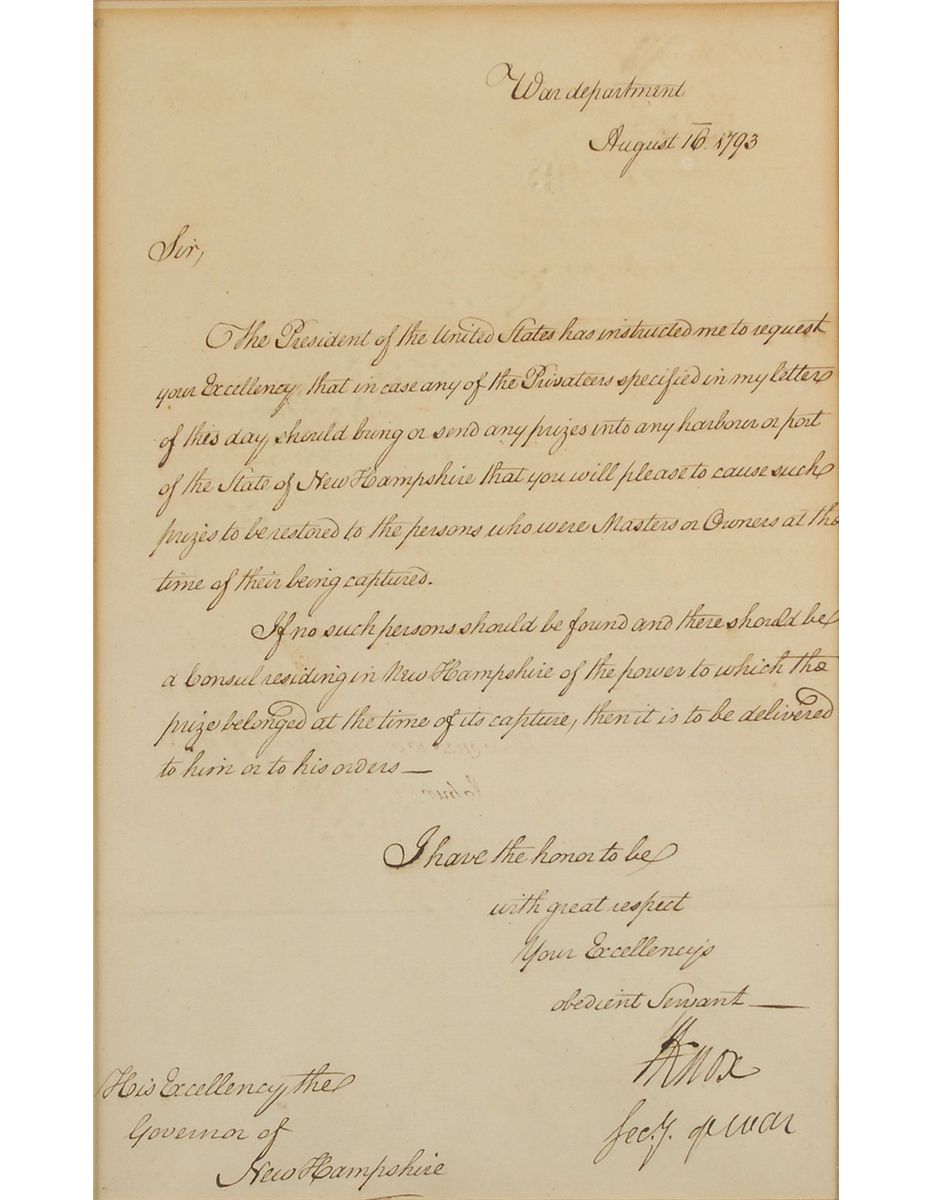 War department
August 16. 1793
Sir,
The President of the United States has instructed me to request
your Excellency, that in case any of the Privateers specified in my letter
of this day, should bring or send any prizes into any harbour or port
of the State of New Hampshire that you will please to cause such
prizes to be restored to the persons who were Masters or Owners at the
time of their being captured.
If no such persons should be found and there should be
a Consul residing in New Hampshire of the power to which the
prize belonged at the time of its capture, then it is to be delivered
to him or to his orders—
I have the honor to be
with great respect
Your Excellency's
obedient Servant—
HKnox
Secy. of war
His Excellency the
Governor of
New Hampshire